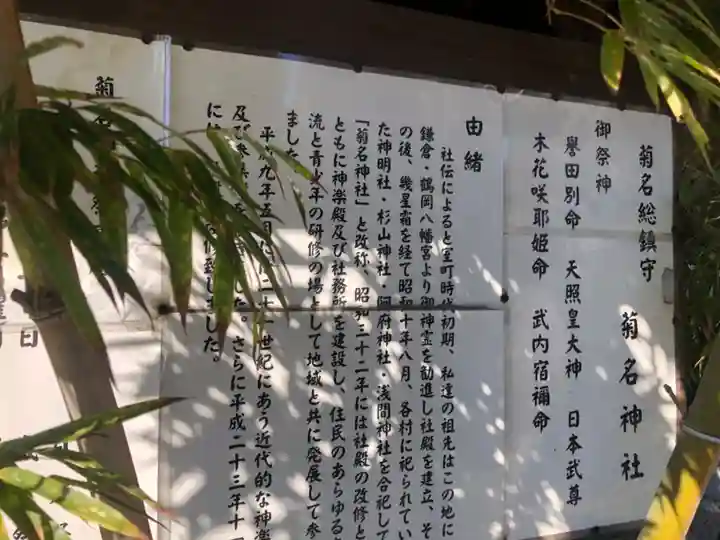 菊名総鎮守 菊名神社
御祭神
誉田別命 天照皇大神 日本武尊
木花咲耶姫命 武内宿禰命
由緒
社伝によると室町時代初期、私達の祖先はこの地に
鎌倉・鶴岡八幡宮より御神霊を勧進し社殿を建立、そ
の後、幾星霜を経て昭和十年八月、各村に祀られてい
た神明社・杉山神社・阿府神社・浅間神社を合祀して
「菊名神社」と改称、昭和三十二年には社殿の改修と
ともに神楽殿及び社務所を建設し、住民のあらゆる
流と青少年の研修の場として地域と共に発展して参
ました。
平成九年五月には二十一世紀にあう近代的な神楽
及び た。さらに平成二十三年十一
に 致しました。
菊名
日